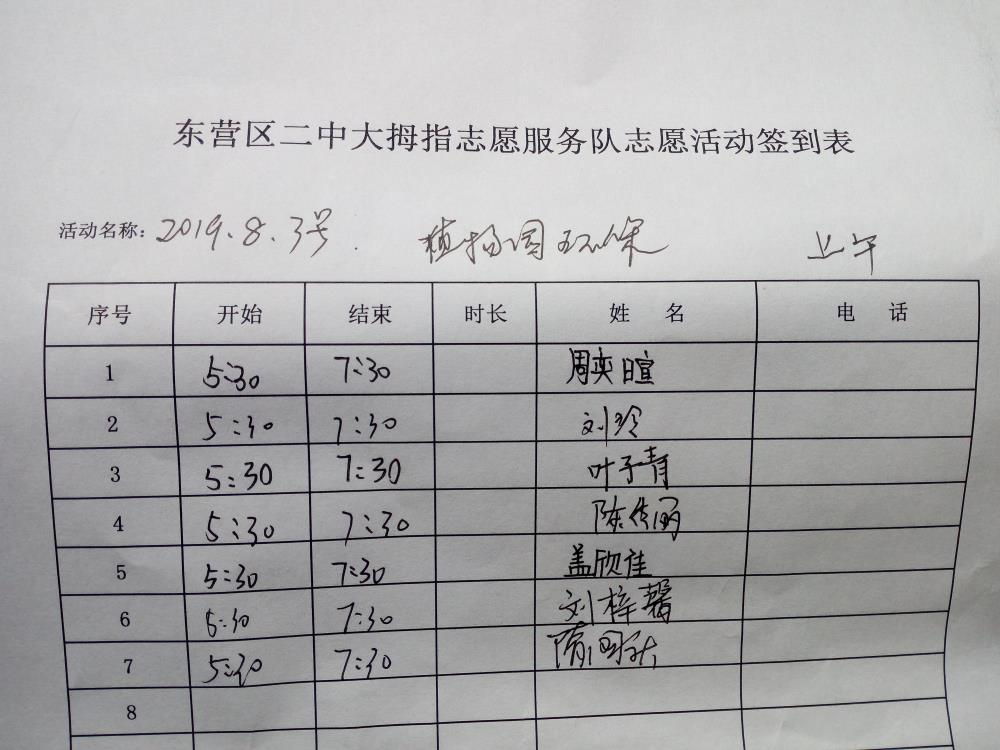 东营区二中大拇指志愿服务队志愿活动签到表
活动名称：2019.8.3号. 植物园环保 上午
序号 开始 结束 时长 姓名 电话
1 5:30 7:30 周奕暄
2 5:30 7:30 刘玲
3 5:30 7:30 叶子青
4 5:30 7:30 陈传丽
5 5:30 7:30 盖欣佳
6 5:30 7:30 刘梓馨
7 5:30 7:30 隋
8